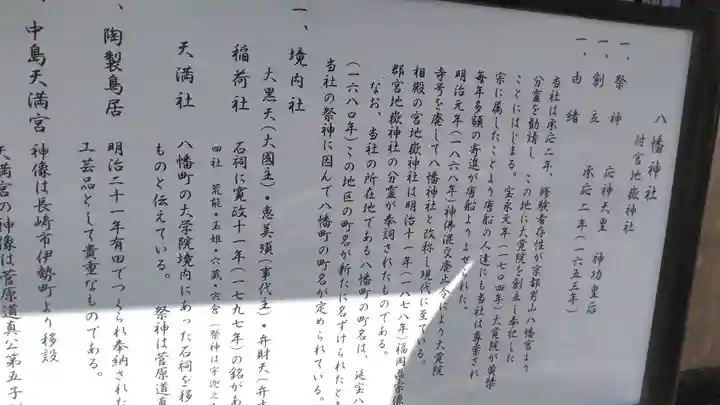 八幡神社
附宮地嶽神社
一、祭神 応神天皇 神功皇后
一、創立 承応二年(一六五三年)
一、由緒
当社は承応二年、修験者存性が京都男山八幡宮より
分霊を勧請し、この地に大覚院を創立し奉祀した
ことにはじまる。宝永元年(一七〇四年)大覚院が黄檗
宗に属したことより唐船の人達にも当社は尊崇され
毎年多額の寄進が唐船よりよせられた。
明治元年(一八六八年)神佛混交廃止令により大覚院
寺号を廃して八幡神社と改称し現代に至ている。
相殿の宮地嶽神社は明治十一年(一八七八年)福岡県宗像
郡宮地嶽神社の分霊が奉祠されたものである。
なお、当社の所在地である八幡町の町名は、延宝八
(一六八〇年)この地区の町名が新たに名ずけられたとき
当社の祭神に因んで八幡町の町名が定められている。
一、境内社
大黒天(大國主)・恵美須(事代主)・弁財天(弁
稲荷社 石祠に寛政十一年(一七九七年)の銘があ
四社 荒熊・玉姫・六蔵・六舎(祭神は宇迦之
天満社 八幡町の大学院境内にあった石祠を移
ものと伝えている。 祭神は菅原道真
、陶製鳥居 明治二十一年有田でつくられ奉納された
工芸品として貴重なものである。
、中島天満宮 神像は長崎市伊勢町より移設
天満宮の神像は菅原道真公第五子